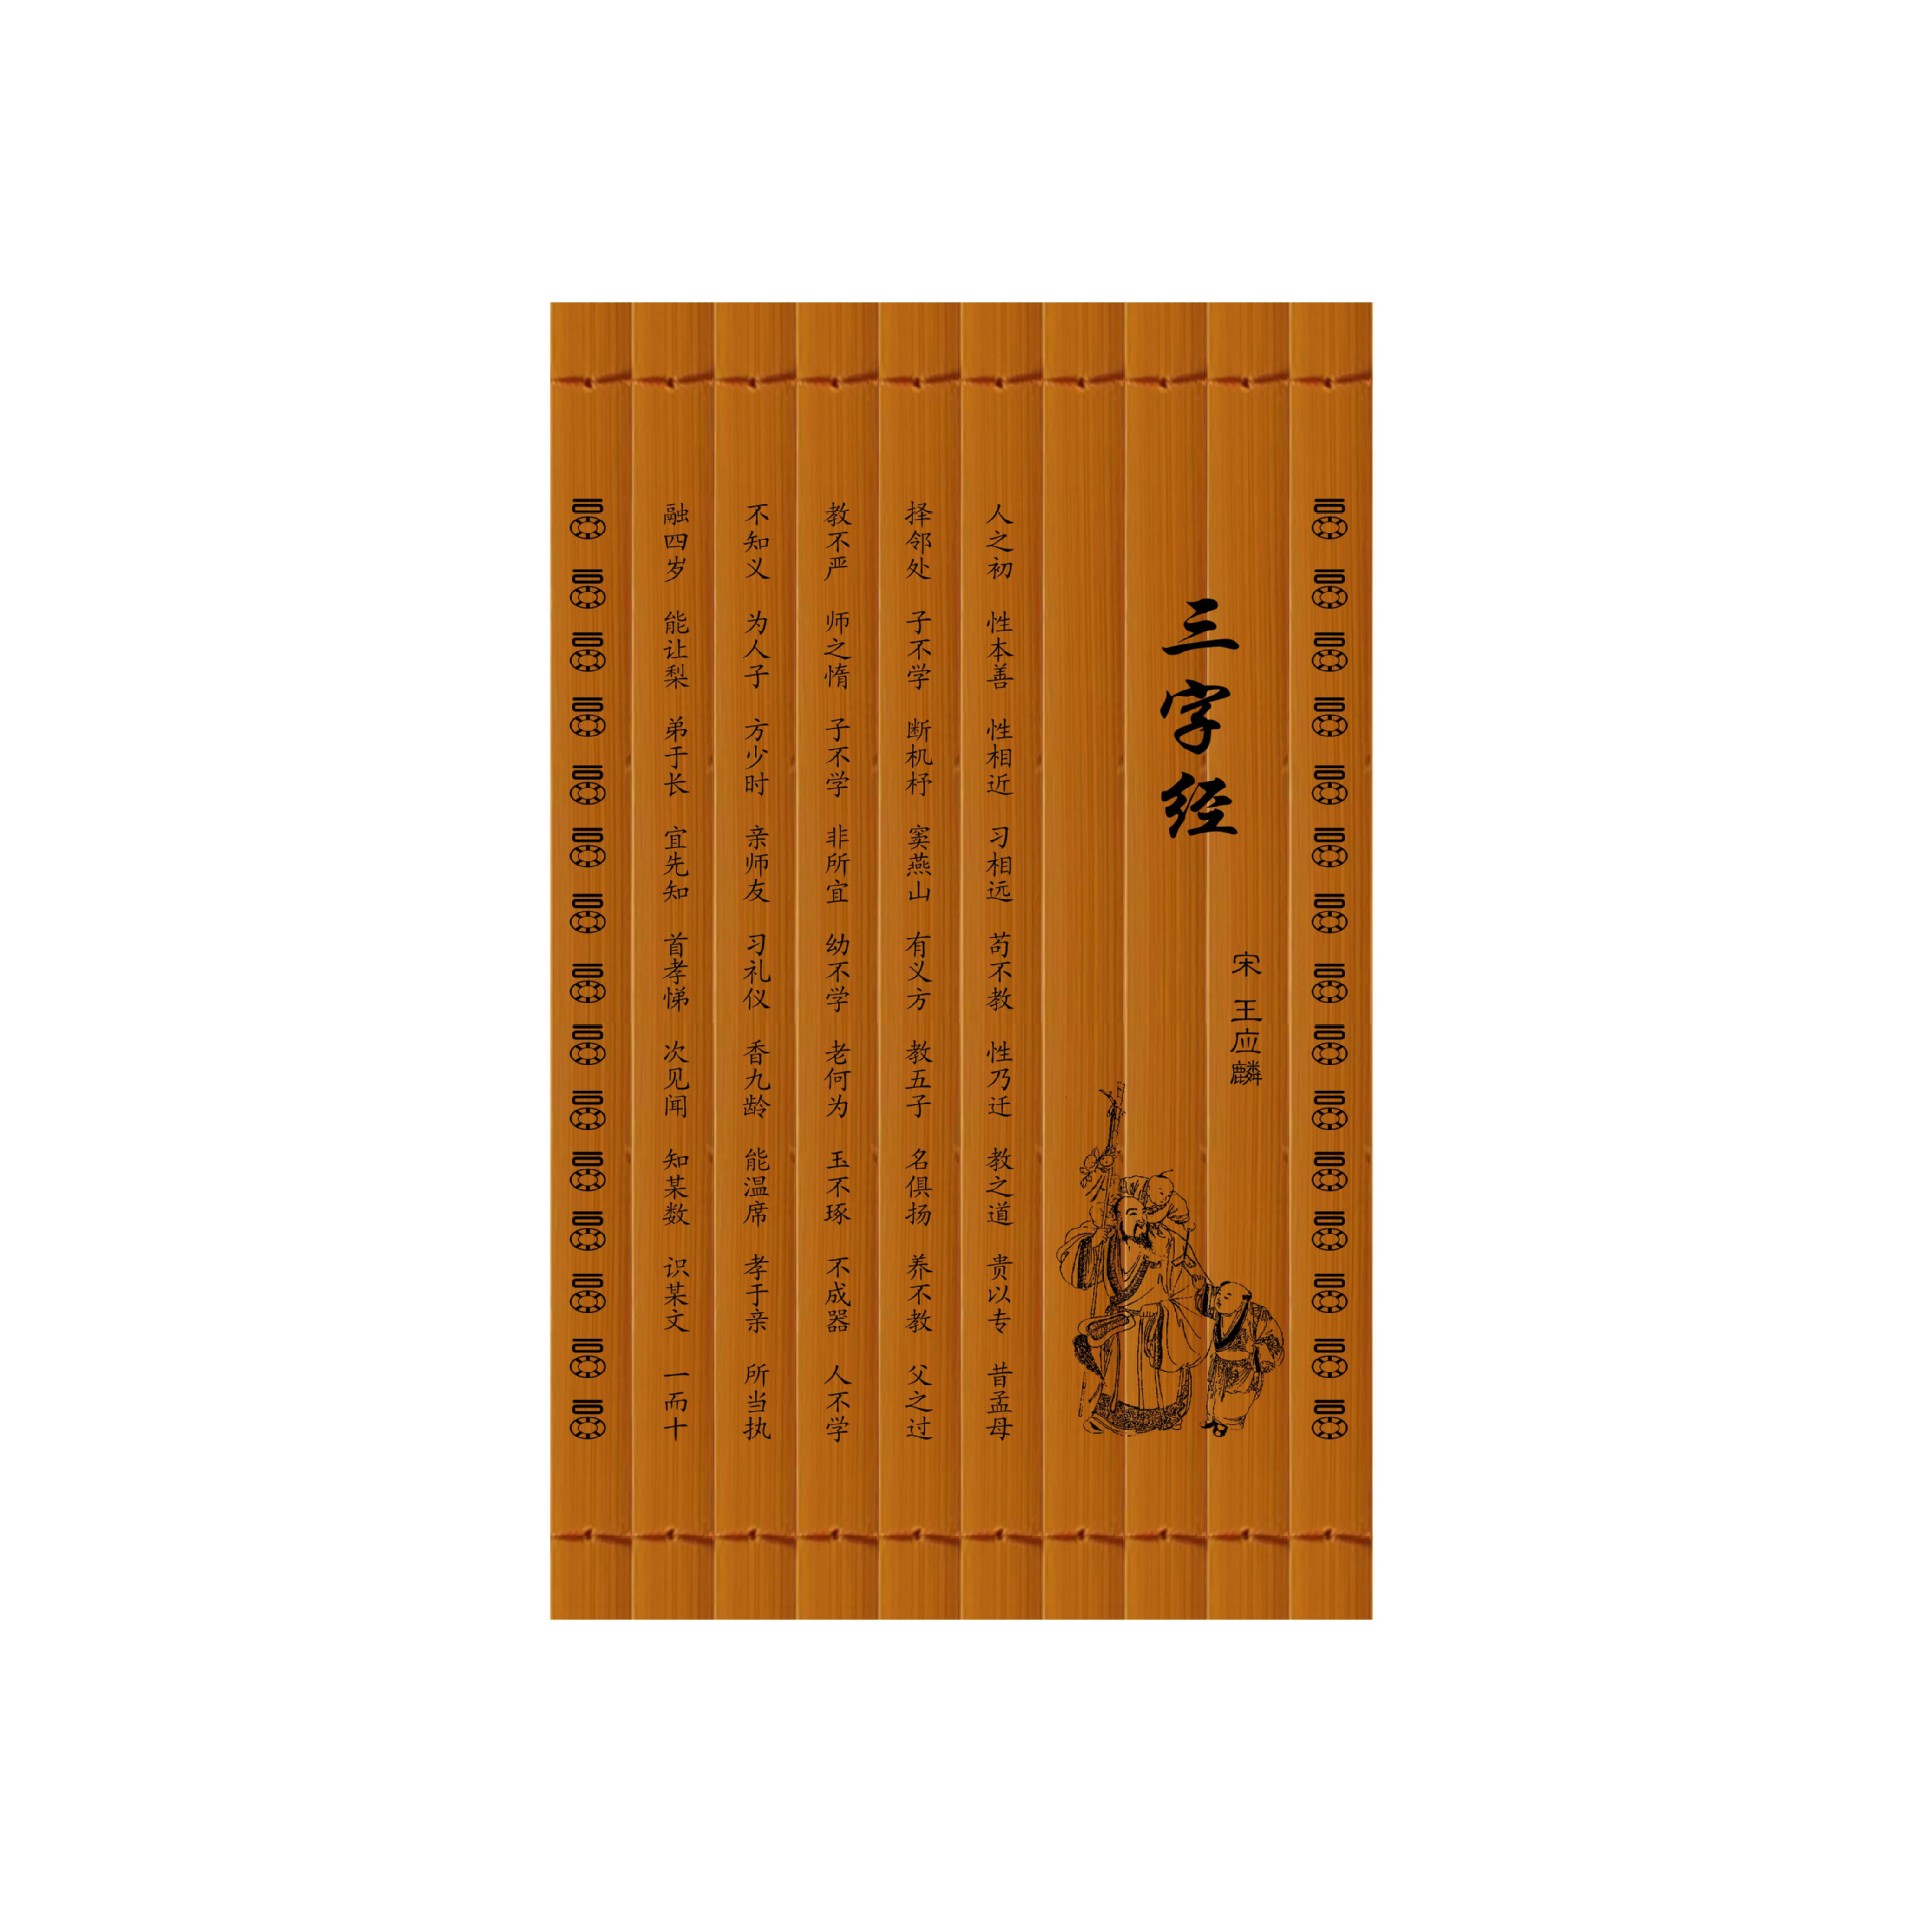 三字经
宋 王应麟
人之初 性本善 性相近 习相远 苟不教 性乃迁 教之道 贵以专 昔孟母
择邻处 子不学 断机杼 窦燕山 有义方 教五子 名俱扬 养不教 父之过
教不严 师之惰 子不学 非所宜 幼不学 老何为 玉不琢 不成器 人不学
不知义 为人子 方少时 亲师友 习礼仪 香九龄 能温席 孝于亲 所当执
融四岁 能让梨 弟于长 宜先知 首孝悌 次见闻 知某数 识某文 一而十